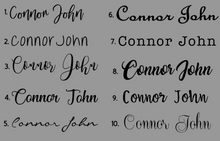 1. Connor John
2. Connor John
3. Connor John
4. Connor John
5. Connor John
6. Connor John
7. Connor John
8. Connor John
9. Connor John
10. Connor John